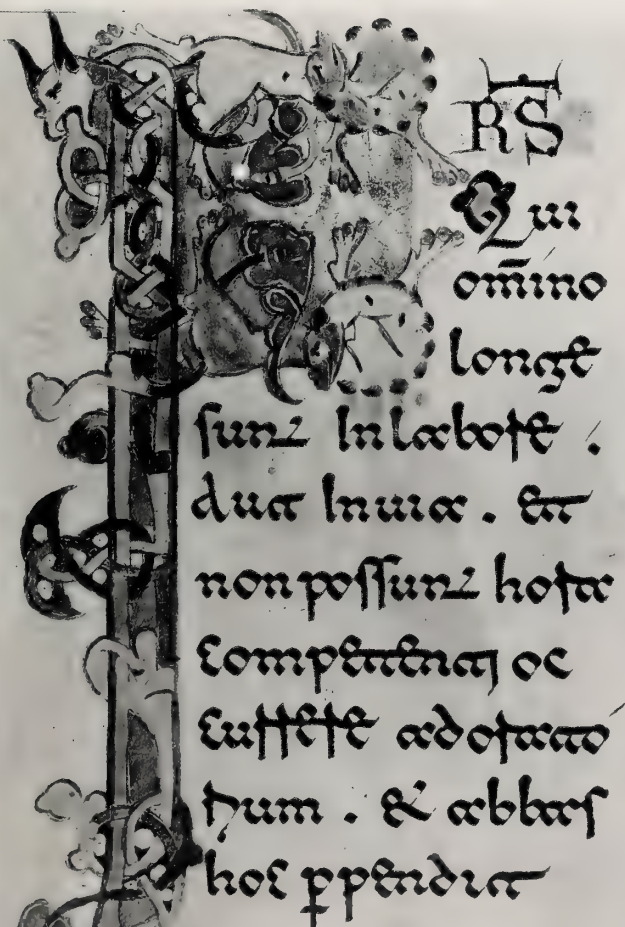 FR̄S
Qui
om̄ino
longe
sunt In labore .
aut In uia . et
non possunt hora
competenti oc
currere ad orato
rium . & abbas
hoc ꝑpendit